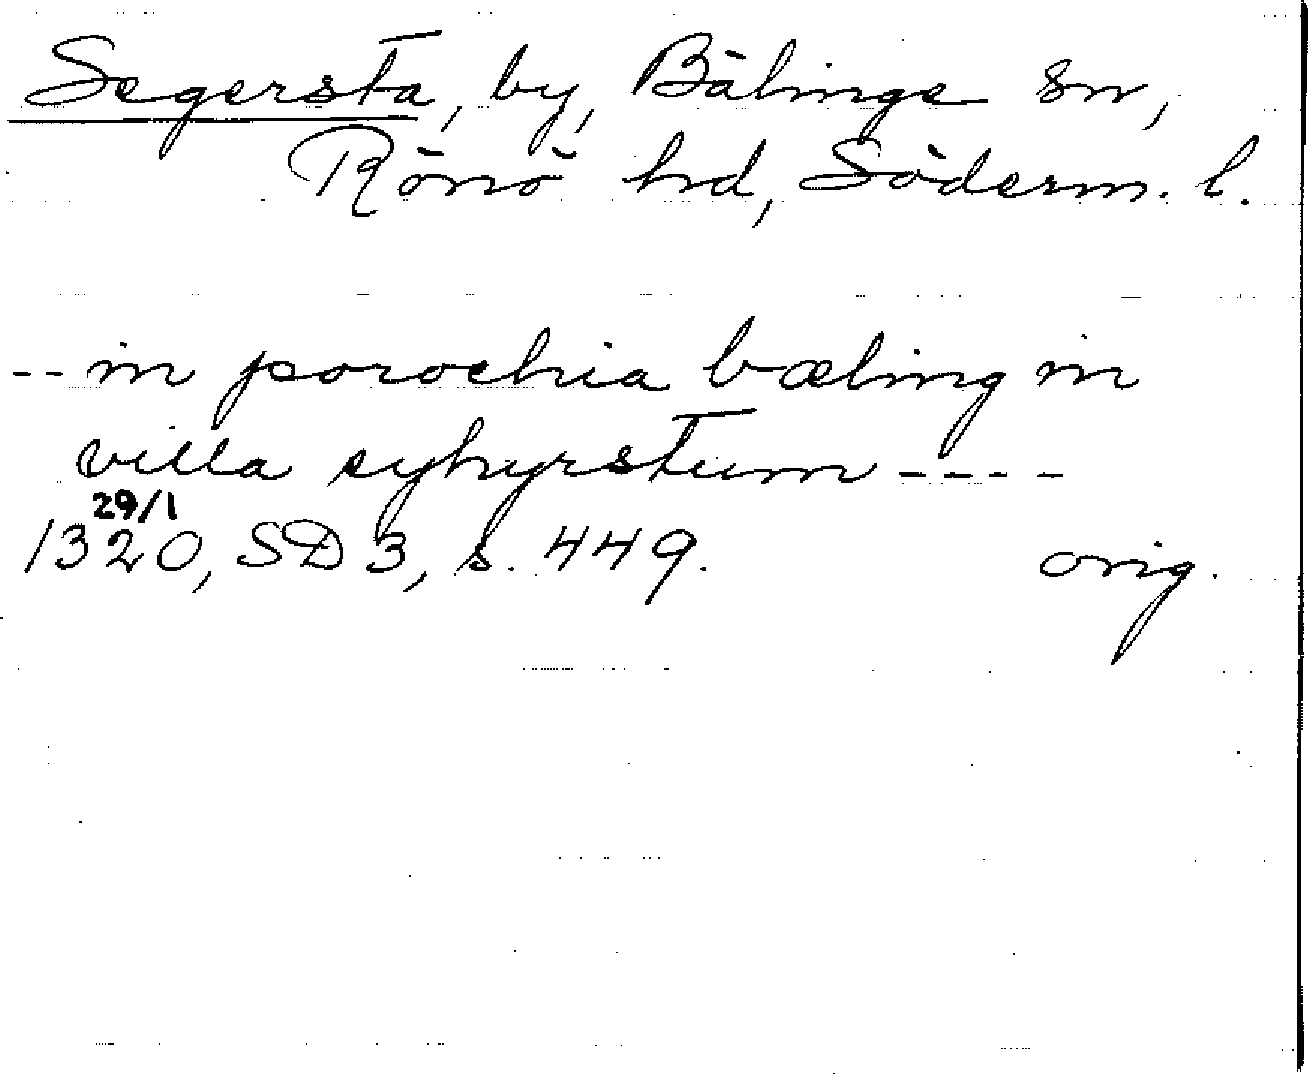 Segersta, by, Bälinge sn,
Rönö hd, Söderm. l.
-- in porochia bæling in
villa syhyrstum ----
29/1
1320, SD 3, s. 449. orig.